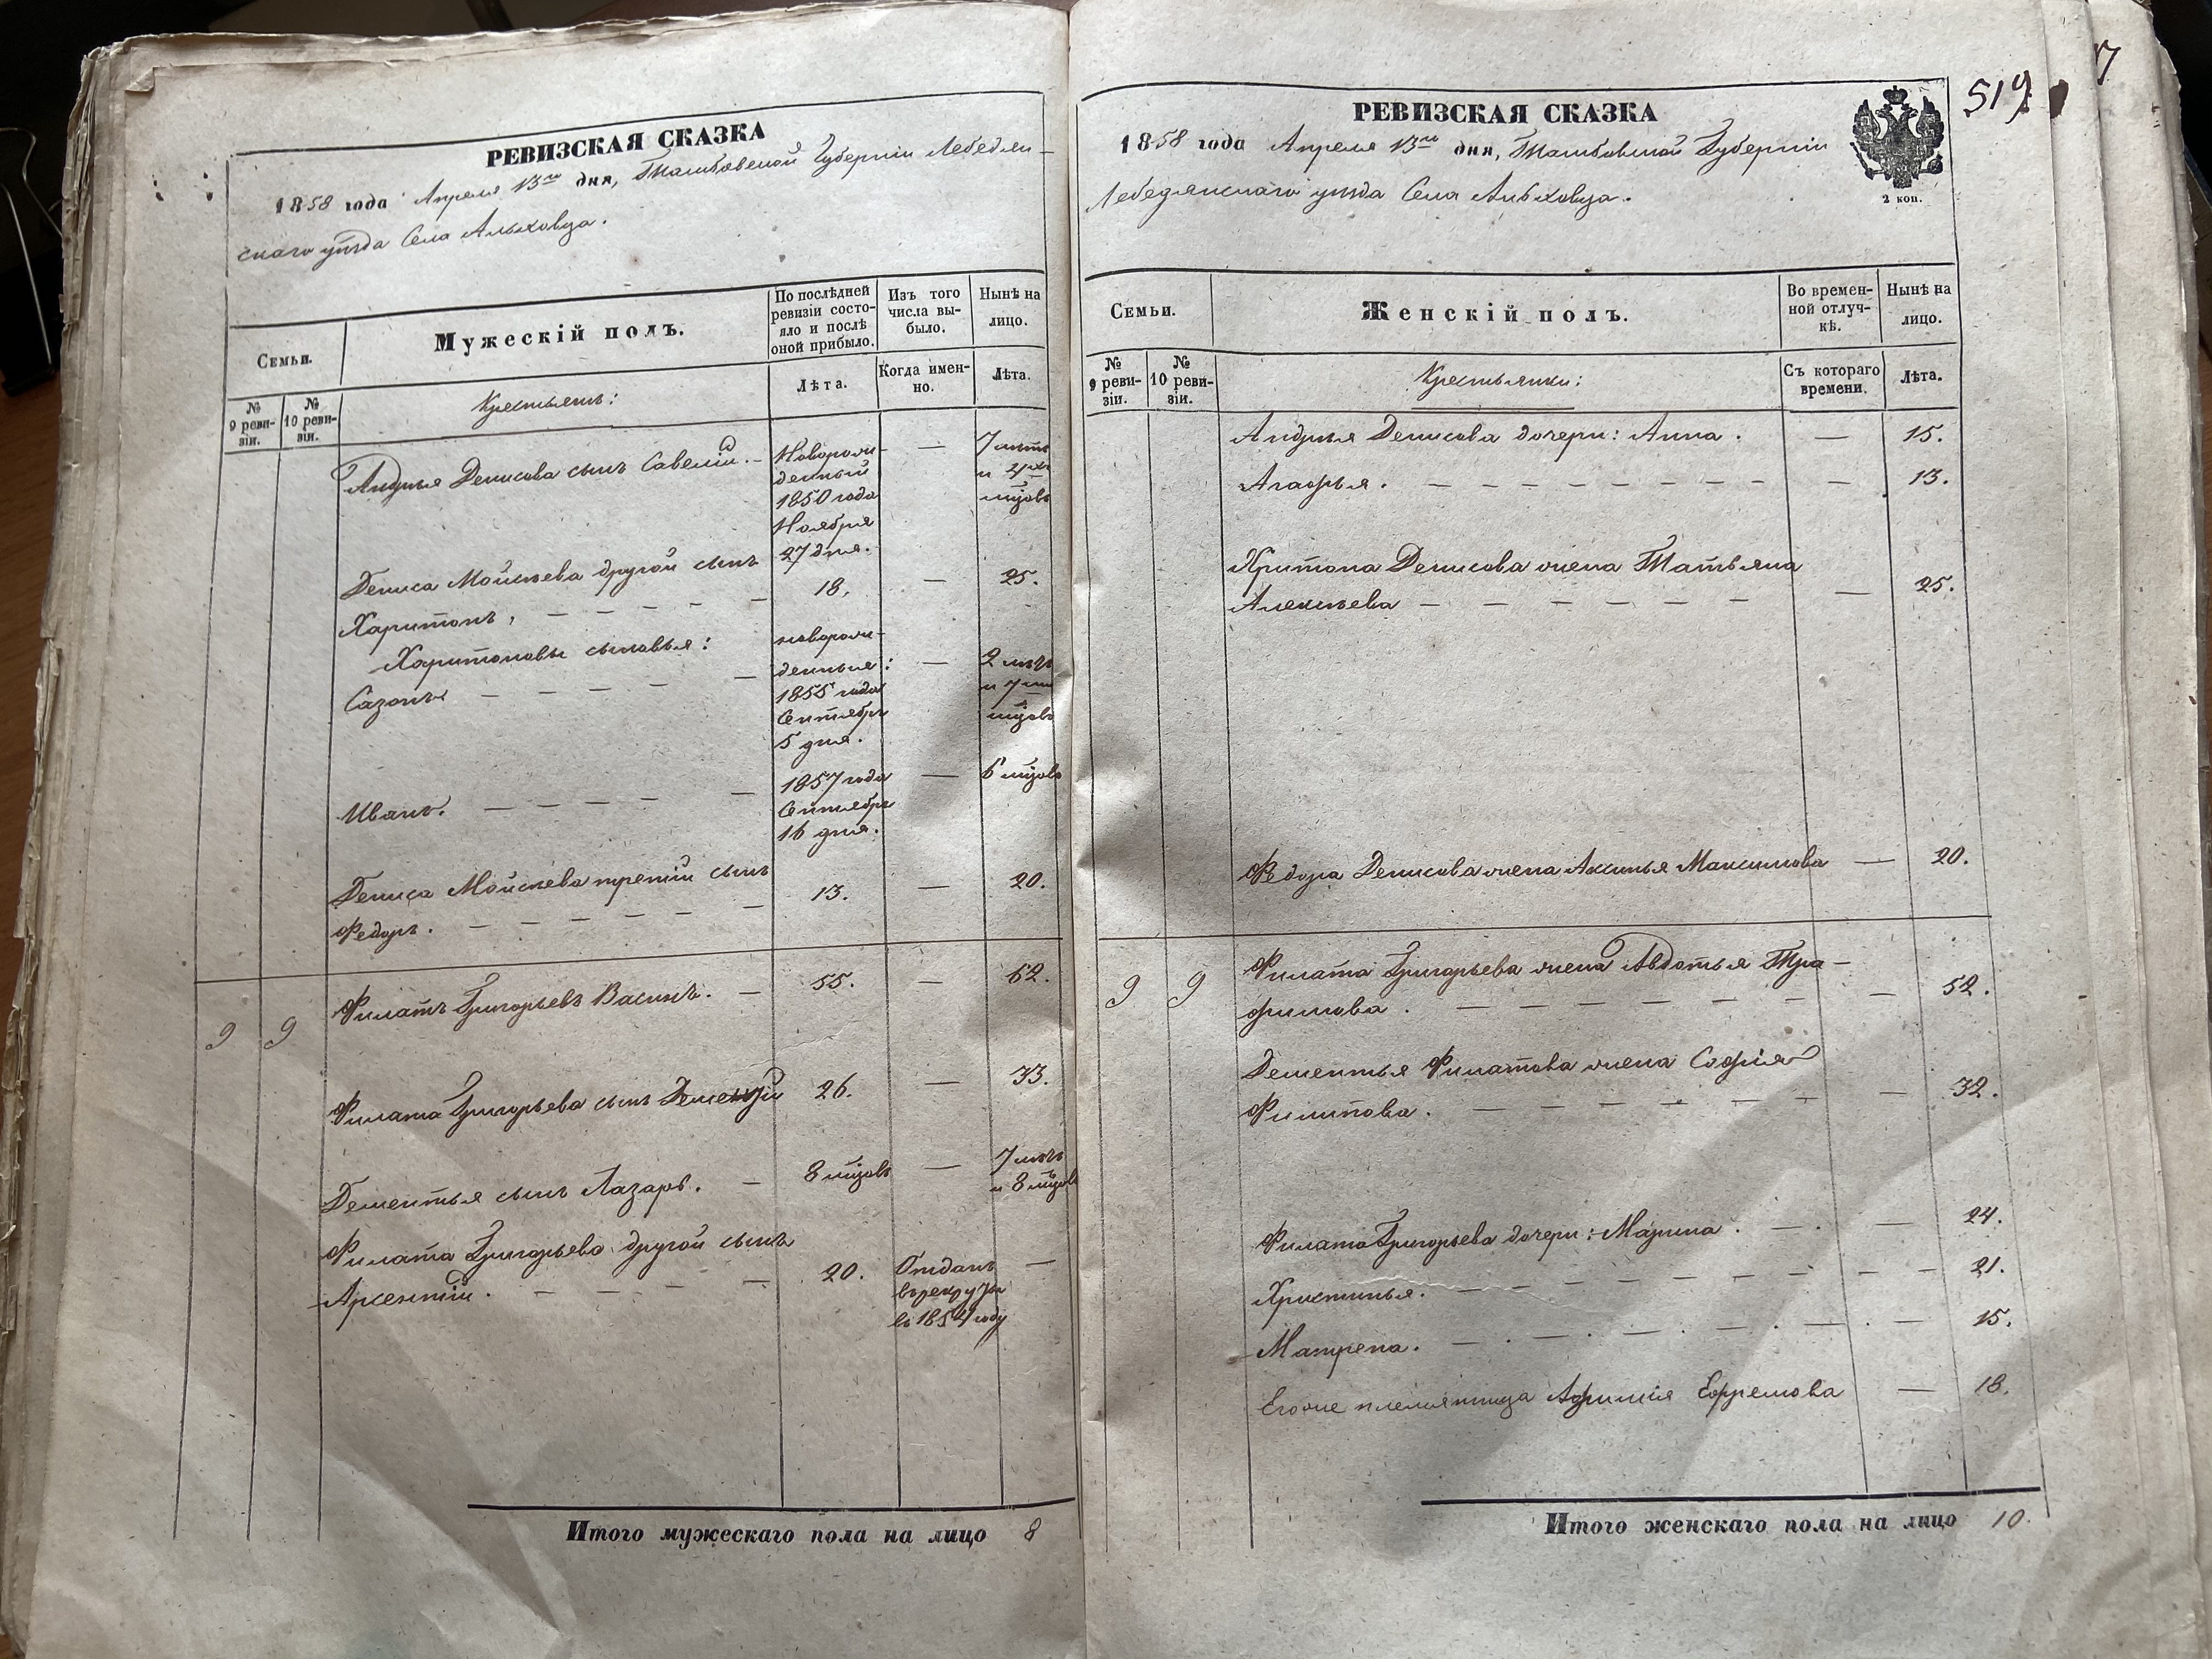 РЕВИЗСКАЯ СКАЗКА
1858 года Апреля 13го дня, Тамбовской Губерніи Лебедян-
скаго уѣзда Села Альховца.
Семьи.
Мужескій полъ.
По послѣдней ревизіи состояло и послѣ оной прибыло.
Изъ того числа выбыло.
Нынѣ на лицо.
№ 9 ревизіи.
№ 10 ревизіи.
Крестьяне:
Лѣта.
Когда именно.
Лѣта.
Андрея Денисова сынъ Савелій. — Новорожденный 1850 года Ноября 27 дня. — 7 лѣтъ и 4 мцовъ
Дениса Моисѣева другой сынъ
Харитонъ, — 18. — 25.
Харитоновы сыновья:
Сазонъ — новорожденные: 1855 года Сентября 5 дня. — 2 лѣтъ и 7 мцовъ
Иванъ. — 1857 года Сентября 16 дня. — 6 мцовъ
Дениса Моисѣева третій сынъ
Федоръ. — 13. — 20.
9 9 Филатъ Григорьевъ Васинъ. — 55. — 62.
Филата Григорьева сынъ Дементій 26. — 33.
Дементья сынъ Лазарь. — 8 мцовъ — 7 лѣтъ и 8 мцовъ
Филата Григорьева другой сынъ
Арсентій. — 20. Отданъ въ рекруты въ 1854 году —
Итого мужескаго пола на лицо 8
519
17
РЕВИЗСКАЯ СКАЗКА
1858 года Апреля 13го дня, Тамбовской Губерніи
Лебедянскаго уѣзда Села Альховца.
2 коп.
Семьи.
Женскій полъ.
Во временной отлучкѣ.
Нынѣ на лицо.
№ 9 ревизіи.
№ 10 ревизіи.
Крестьянки:
Съ котораго времени.
Лѣта.
Андрея Денисова дочери: Анна. — 15.
Агафья. — 13.
Хритона Денисова жена Татьяна
Алексѣева — 25.
Федора Денисова жена Аксинья Максимова — 20.
9 9 Филата Григорьева жена Авдотья Тра-
фимова. — 52.
Дементья Филатова жена Софія
Филипова. — 32.
Филата Григорьева дочери: Марина. — 24.
Христинья. — 21.
Матрена. — 15.
Егоже племянница Афимія Ефремова — 18.
Итого женскаго пола на лицо 10.